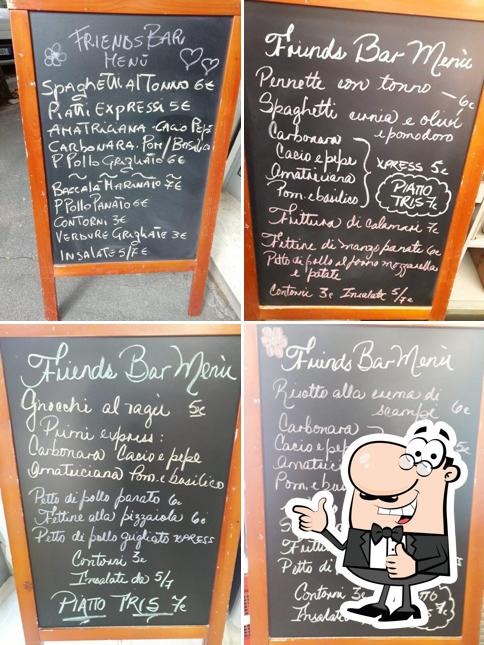 FRIENDS BAR
MENÙ
SPAGHETTI AL TONNO 6€
PIATTI EXPRESSI 5€
AMATRICIANA - CACIO PEPE
CARBONARA - POM/BASILICO
P POLLO GRIGLIATO 6€
BACCALÀ MARINATO 7€
P POLLO PANATO 6€
CONTORNI 3€
VERDURE GRIGLIATE 3€
INSALATE 5/7€
Friends Bar Menù
Pennette con tonno — 6€
Spaghetti cernia e olive
e pomodoro
Carbonara
Cacio e pepe
Amatriciana
Pom. e basilico
XPRESS 5€
PIATTO
TRIS 7€
Frittura di calamari 7€
Fettine di manzo panate 6€
Petto di pollo al forno mozzarella
e patate
Contorni 3€ Insalate 5/7€
Friends Bar Menù
Gnocchi al ragù 5€
Primi express:
Carbonara Cacio e pepe
Amatriciana Pom. e basilico
Petto di pollo panato 6€
Fettine alla pizzaiola 6€
Petto di pollo grigliato XPRESS
Contorni 3€
Insalate da 5/7
PIATTO TRIS 7€
Friends Bar Menù
Risotto alla crema di
scampi 6€
Carbonara
Cacio e pep
Amatric
Pom. e ba
5€
Petto di
Contorni 3€
Insalate